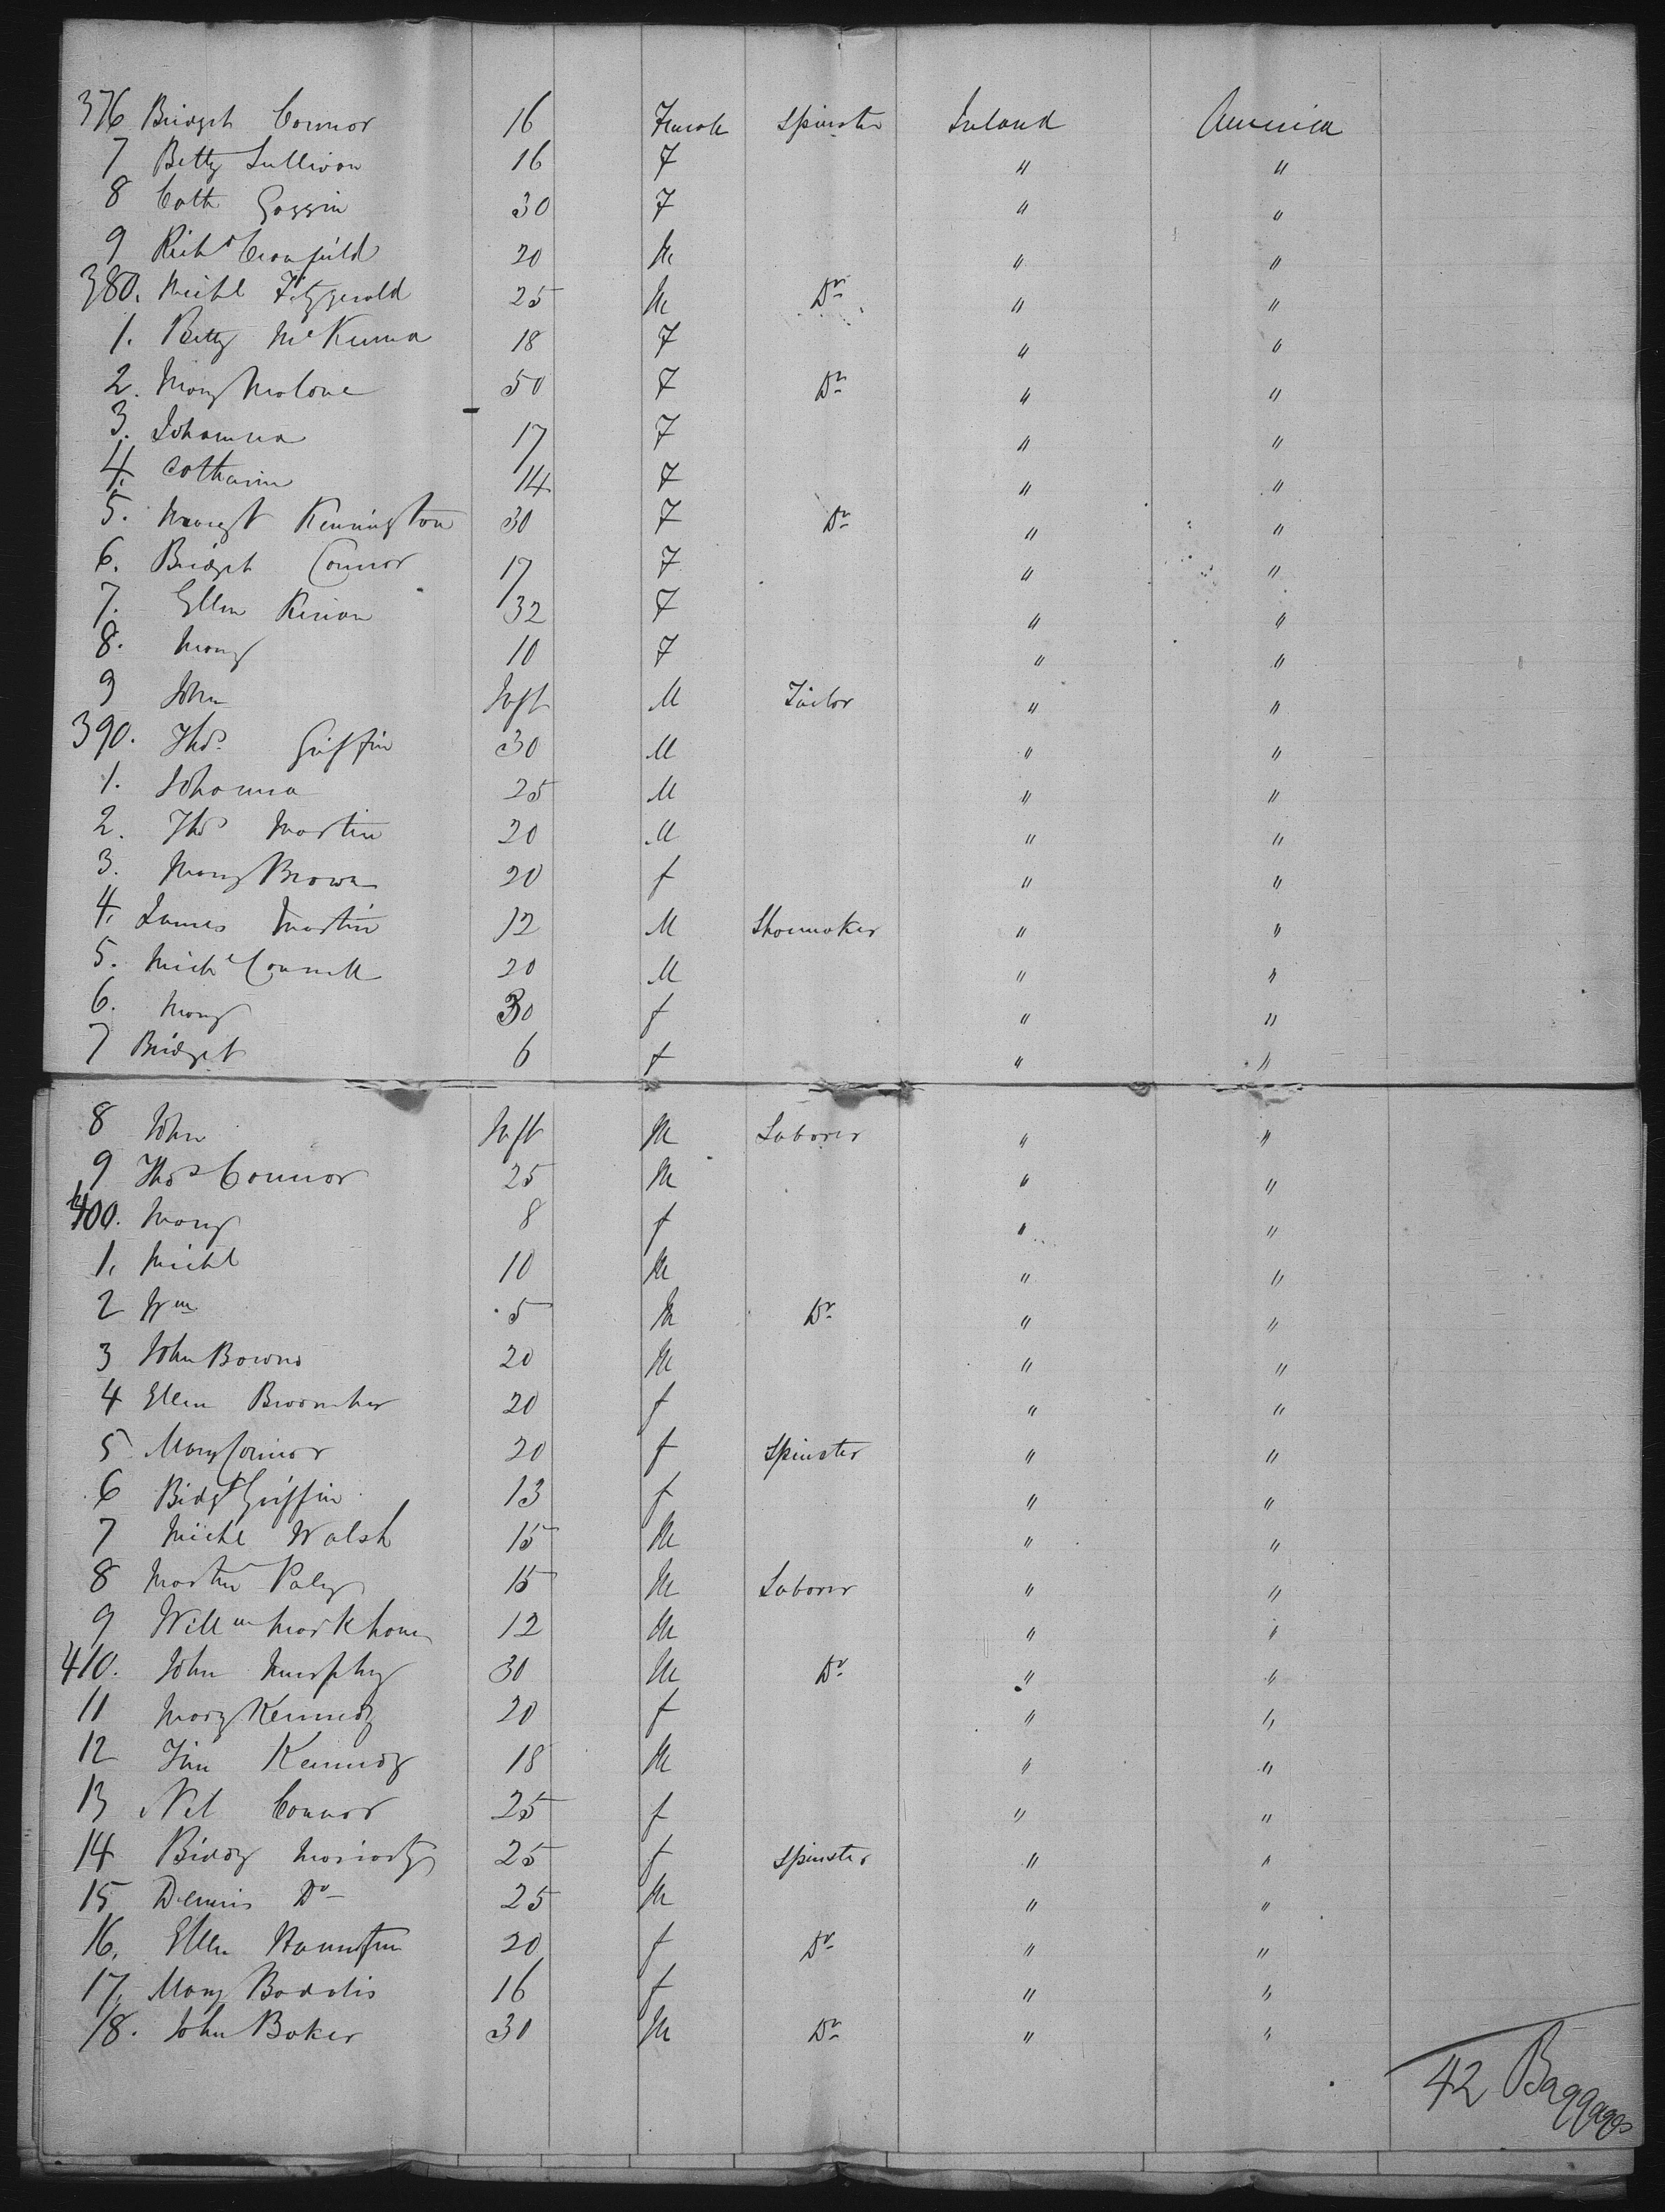 376 Bridget Connor 16 Female Spinster Ireland America
7 Betty Sullivan 16 F " "
8 Cath Goggin 30 F " "
9 Richd Cronfield 20 M " "
380. Michl Fitzgerald 25 M Do " "
1. Betty McKenna 18 F " "
2. Mary Malone 50 F Do " "
3. Johanna 17 F " "
4. Catharine 14 F " "
5. Margt Kennington 30 F Do " "
6. Bridget Connor 17 F " "
7. Ellen Kirion 32 F " "
8. Mary 10 F " "
9 John Inft M Tailor " "
390. Thos. Griffin 30 M " "
1. Johanna 25 M " "
2. Thos Martin 20 M " "
3. Mary Brown 20 f " "
4. James Martin 12 M Shoemaker " "
5. Michl Connell 20 M " "
6. Mary 30 f " "
7 Bridget 6 f " "
8 John Inft M Laborer " "
9 Thos Connor 25 M " "
400. Mary 8 f " "
1. Michl 10 M " "
2 Wm 5 M Do " "
3 John Bowns 20 M " "
4 Ellen 20 f " "
5 Mary Connor 20 f Spinster " "
6 Bidgt Griffin 13 f " "
7 Michl Walsh 15 M " "
8 Martin Paley 15 M Laborer " "
9 Willm Markham 12 M " "
410. John Murphy 30 M Do " "
11 Mary Kennedy 20 f " "
12 Jim Kennedy 18 M " "
13 Nel Connor 25 f " "
14 Biddy Moriarty 25 f Spinster " "
15 Dennis Do 25 M " "
16. Ellen 20 f Do " "
17. Mary Bodalis 16 f " "
18. John Baker 30 M Do " "
42 Baggages